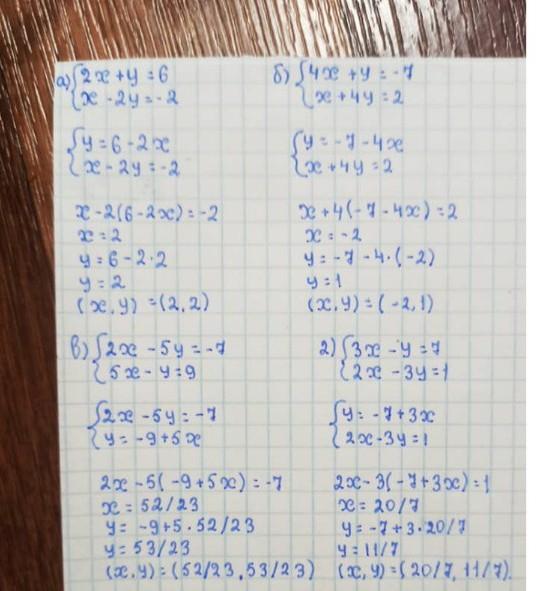 а) {2x + y = 6
x - 2y = -2
{y = 6 - 2x
x - 2y = -2
x - 2(6 - 2x) = -2
x = 2
y = 6 - 2·2
y = 2
(x, y) = (2, 2)
б) {4x + y = -7
x + 4y = 2
{y = -7 - 4x
x + 4y = 2
x + 4(-7 - 4x) = 2
x = -2
y = -7 - 4·(-2)
y = 1
(x, y) = (-2, 1)
в) {2x - 5y = -7
5x - y = 9
{2x - 5y = -7
y = -9 + 5x
2x - 5(-9 + 5x) = -7
x = 52/23
y = -9 + 5·52/23
y = 53/23
(x, y) = (52/23, 53/23)
г) {3x - y = 7
2x - 3y = 1
{y = -7 + 3x
2x - 3y = 1
2x - 3(-7 + 3x) = 1
x = 20/7
y = -7 + 3·20/7
y = 11/7
(x, y) = (20/7, 11/7).